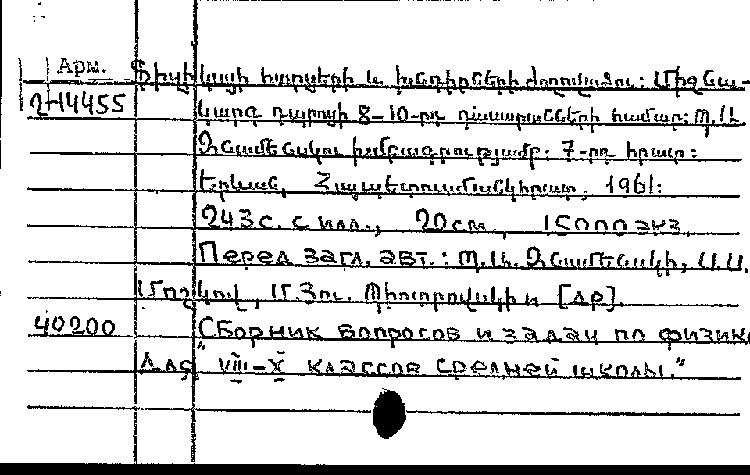 Арм. Ֆիզիկայի հարցերի և խնդիրների ժողովածու: Միջնա-
2-14455 կարգ դպրոցի 8-10-րդ դասարանների համար: Պ.Ա.
Զնամենսկու խմբագրությամբ. 7-րդ հրատ:
Երևան, Հայպետուսմանկհրատ, 1961:
243 с. с илл., 20 см, 15000 экз.
Перед загл. авт.: Պ.Ա. Զնամենսկի,
Մոշկով, [др].
40200 Сборник вопросов и задач по физике
для VIII-X классов средней школы."